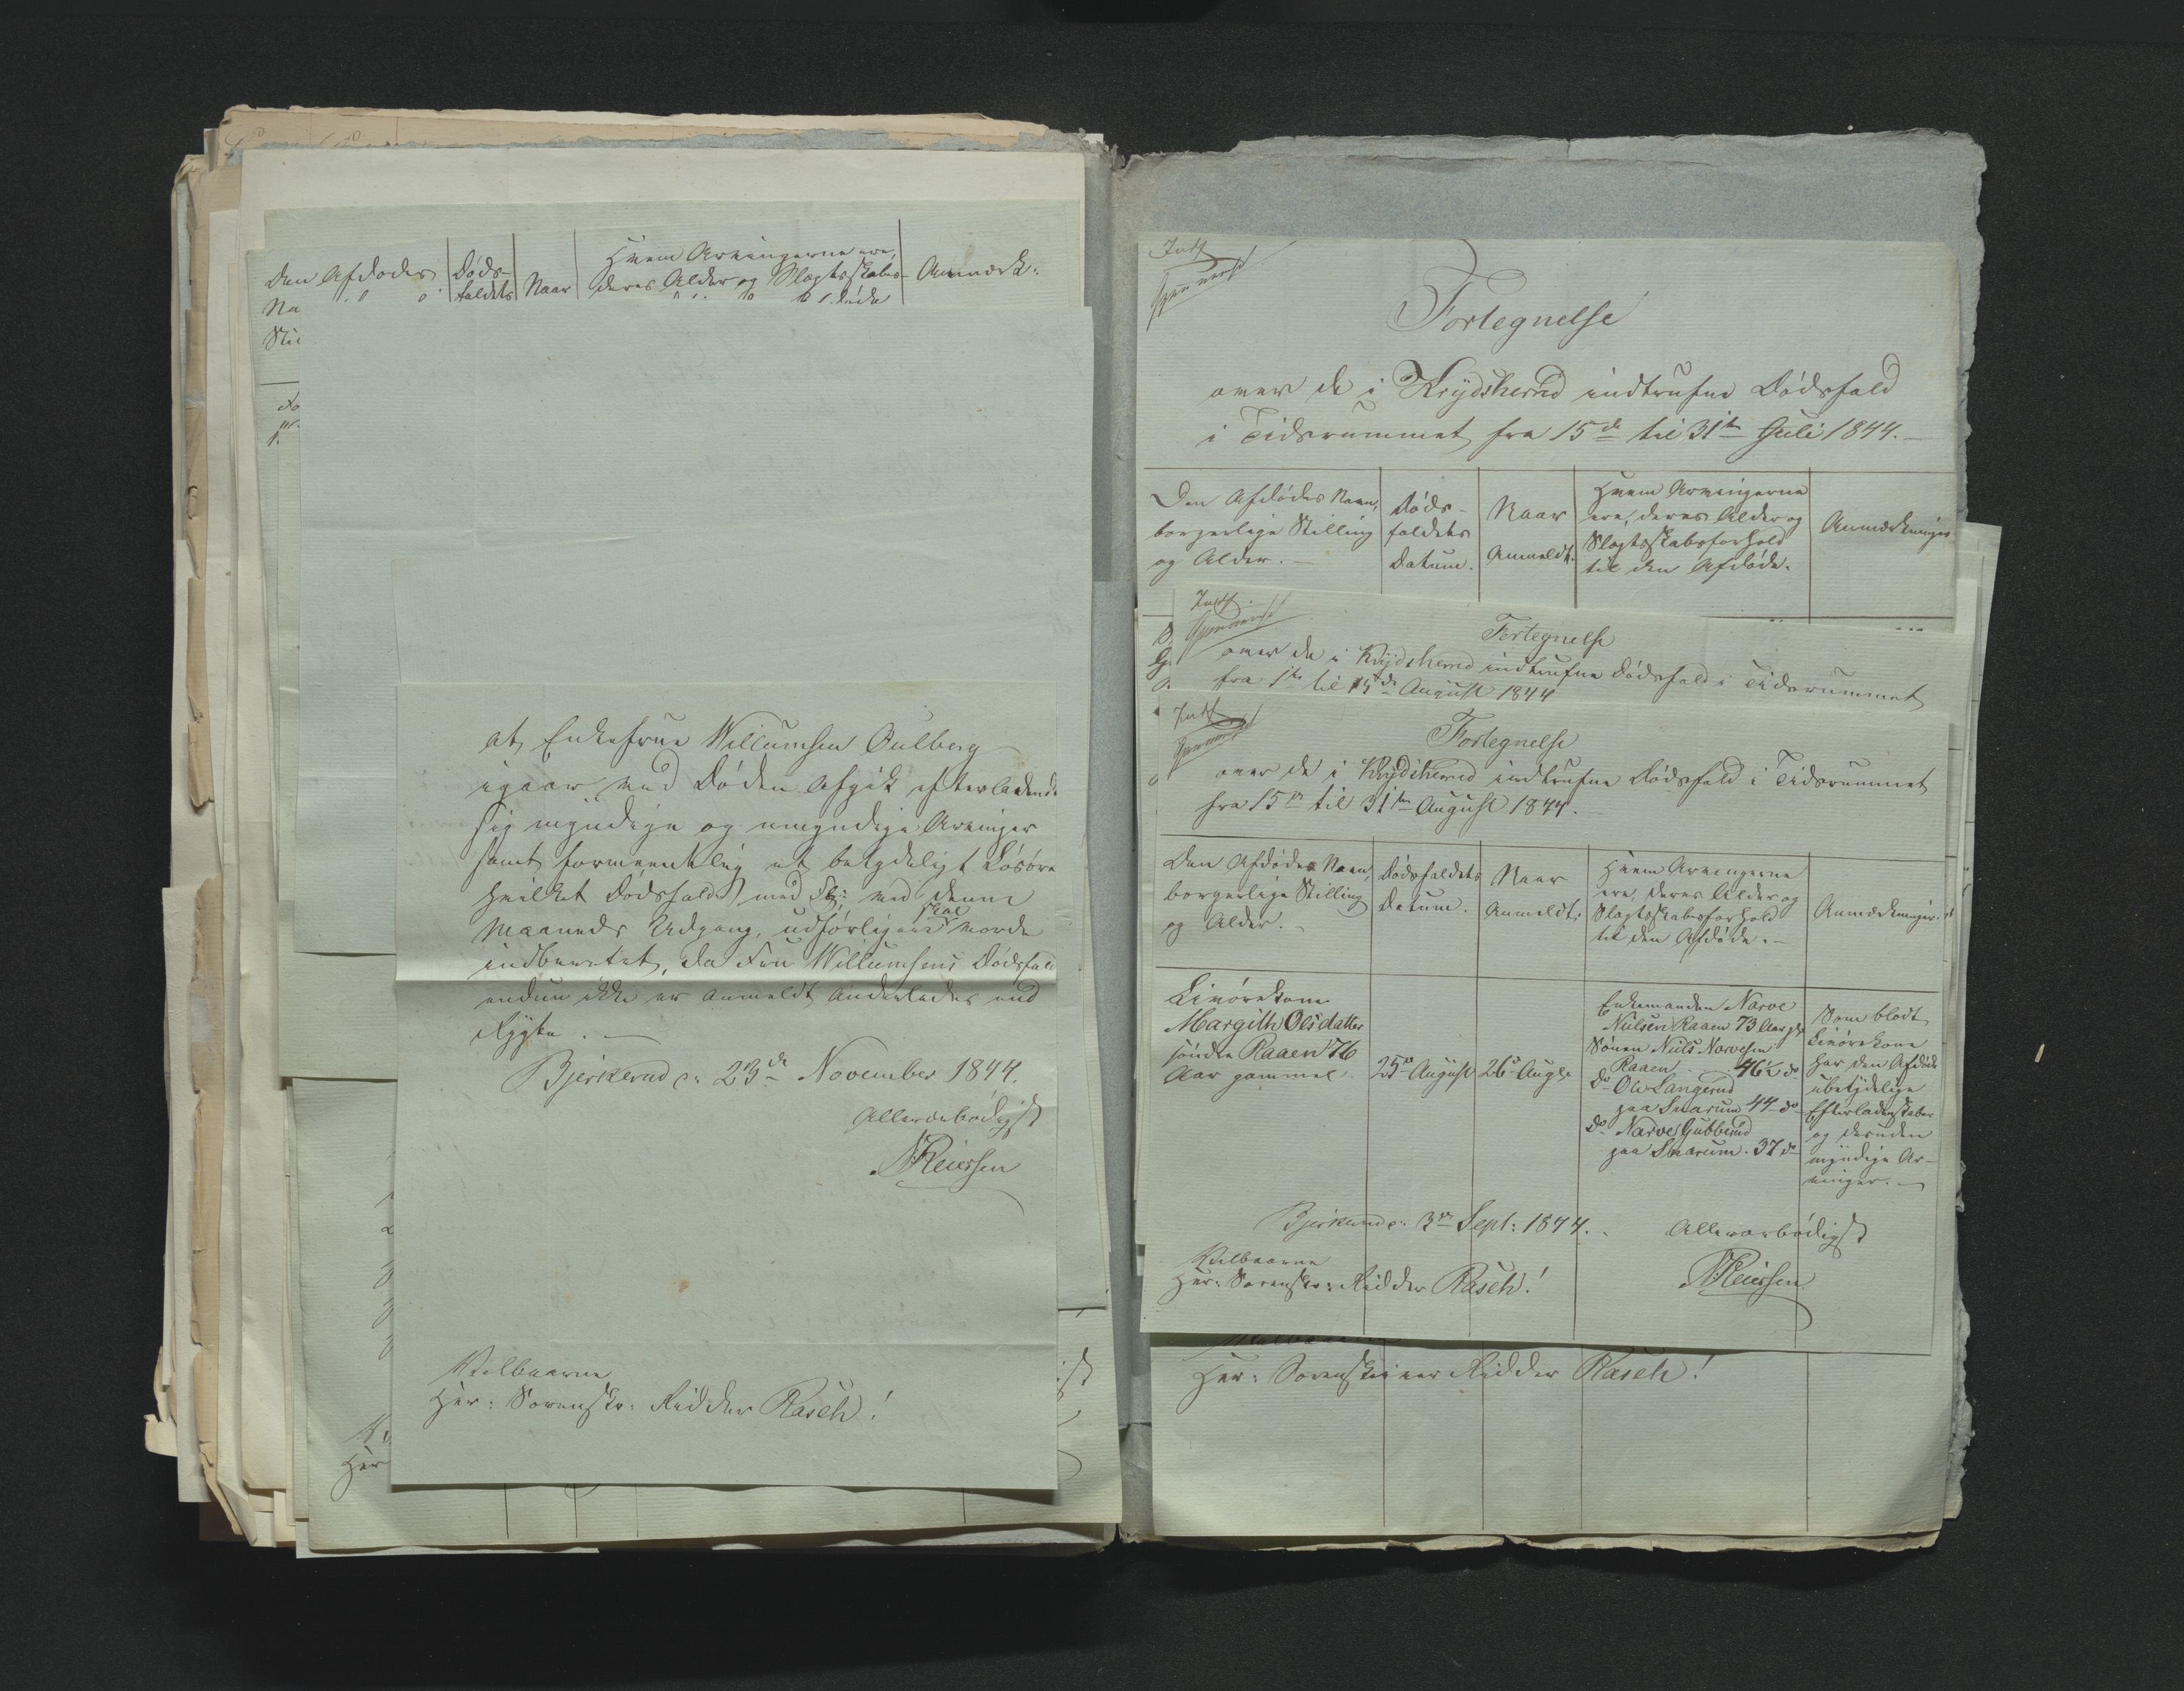 Den Afdødes
Døds-
faldets
Naar
Hvem Arvingerne ere,
deres Alder og Slægtskabs-
Anmærk:
Na
Sti
at Enkefrue Willumsen Bulberg
igaar ved Døden afgik efterladende
sig myndige og umyndige Arvinger
samt formeentlig et betydeligt Løsøre
hvilket Dødsfald med Flr: ved denne
Maaneds Udgang, udførligere skal vorde
indberetet, da Fru Willumsens Dødsfald
endnu ikke er anmeldt anderledes end
Rygte. —
Bjerkerud d: 23de November 1844.
Allerærbødigst
N Reiersen
Velbaarne
Herr: Sorenskr: Ridder Rasch!
Fortegnelse
over de i Krydsherred indtrufne Dødsfald
i Tidsrummet fra 15de til 31te Juli 1844. —
Den Afdødes Navn,
borgerlige Stilling
og Alder. —
Døds-
faldets
Datum.
Naar
Anmeldt.
Hvem Arvingerne
ere, deres Alder og
Slægtskabsforhold
til den Afdøde.
Anmærkninger
Fortegnelse
over de i Krydsherred indtrufne Dødsfald i Tidsrummet
fra 1te til 15de August 1844
Fortegnelse
over de i Krydsherred indtrufne Dødsfald i Tidsrummet
fra 15de til 31te August 1844.
Den Afdødes Navn,
borgerlige Stilling
og Alder. —
Dødsfaldets
Datum.
Naar
Anmeldt.
Hvem Arvingerne
ere, deres Alder og
Slægtskabsforhold
til den Afdøde. —
Anmærkninger.
Livørekone
Margith Olsdatter
søndre Raaen 76
Aar gammel
25de August
26de Augs.
Enkemanden Narve
Nielsen Raaen 73 Aar gl.
Sønnen Niels Narvesen
Raaen 46½ do
do Ole Langerud
paa Snarum 44 do
do Narve Gubberud
paa Snarum. 37 do
Som blodt
Livørekone
har den Afdøde
ubetydelige
Efterladenskaber
og desuden
myndige Ar-
vinger. —
Bjerkerud d: 3de Sept: 1844.
Allerærbødigst
N Reiersen
Velbaarne
Herr: Sorenskr: Ridder Rasch!
Herr: Sorenskriver Ridder Rasch!